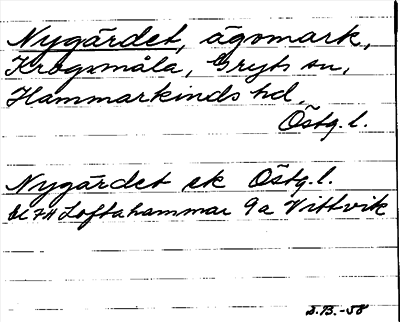 Nygärdet, ägomark,
Krogsmåla, Gryts sn,
Hammarkinds hd,
Östg. l.
Nygärdet ek Östg. l.
bl 7H Loftahammar 9a Vittvik
S.B.-58